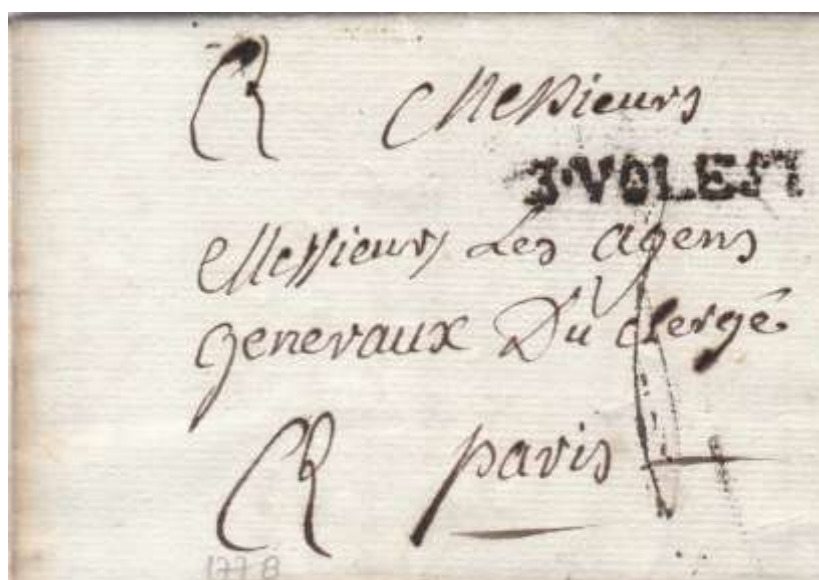 A Messieurs
Messieurs Les agens
generaux Du clergé
A paris 4
177 8